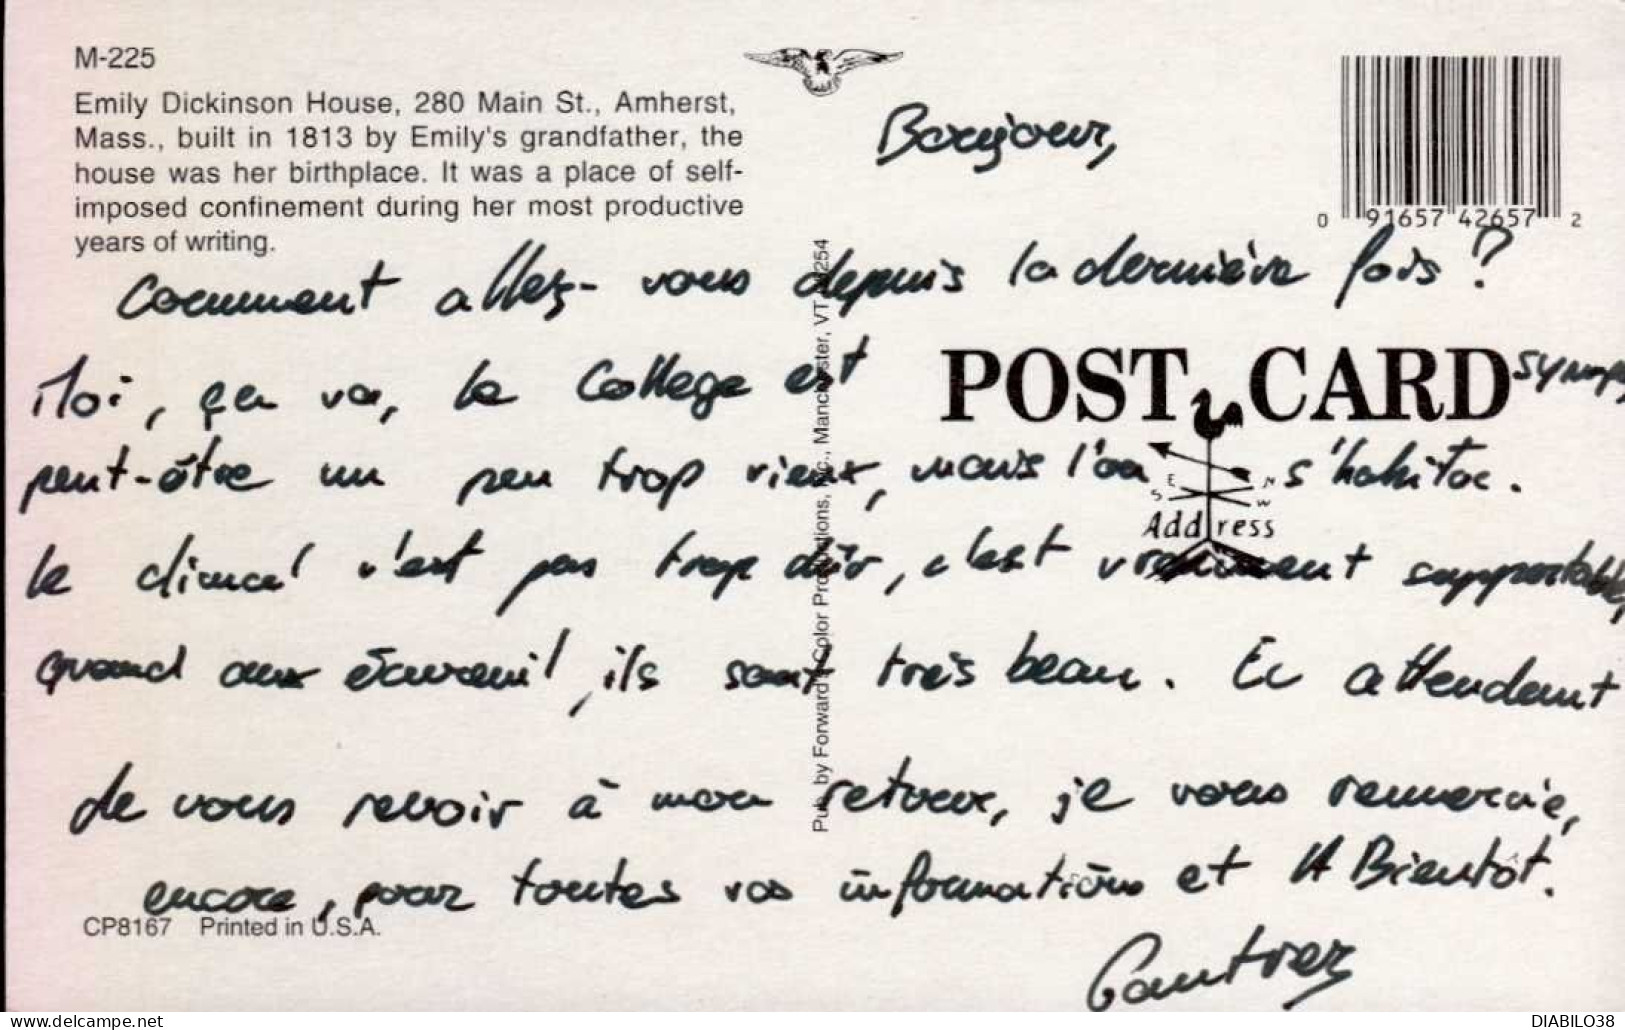 M-225
Emily Dickinson House, 280 Main St., Amherst,
Mass., built in 1813 by Emily's grandfather, the
house was her birthplace. It was a place of self-
imposed confinement during her most productive
years of writing.
0 91657 42657 2
Bonjour,
Comment allez-vous depuis la dernière fois ?
Moi, ça va, le College est
POST CARD
peut-être un peu trop vieux, mais l'on s'habitue.
E N
S W
Address
le climat n'est pas trop dûr, c'est vraiment supportable,
quand aux écureuil, ils sont très beau. En attendant
de vous revoir à mon retour, je vous remercie,
encore, pour toutes vos informations et A Bientôt.
CP8167 Printed in U.S.A.
DIABILO38